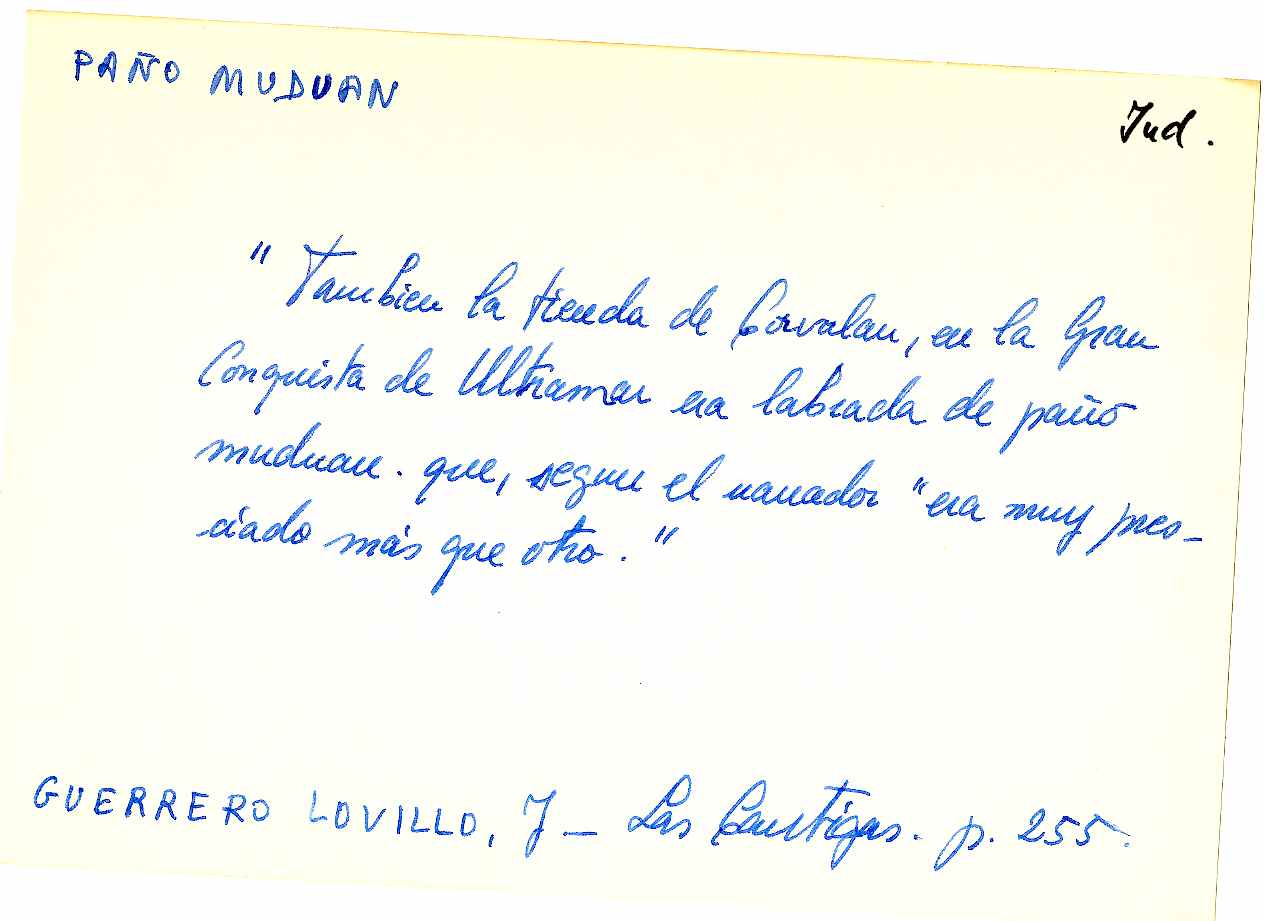 PAÑO MUDUAN
Ind.
"Tambien la tienda de Corvalan, en la Gran
Conquista de Ultramar era labrada de paño
muduan. que, segun el narrador "era muy pres-
ciado más que otro."
GUERRERO LOVILLO, J - Las Cantigas. p. 255.